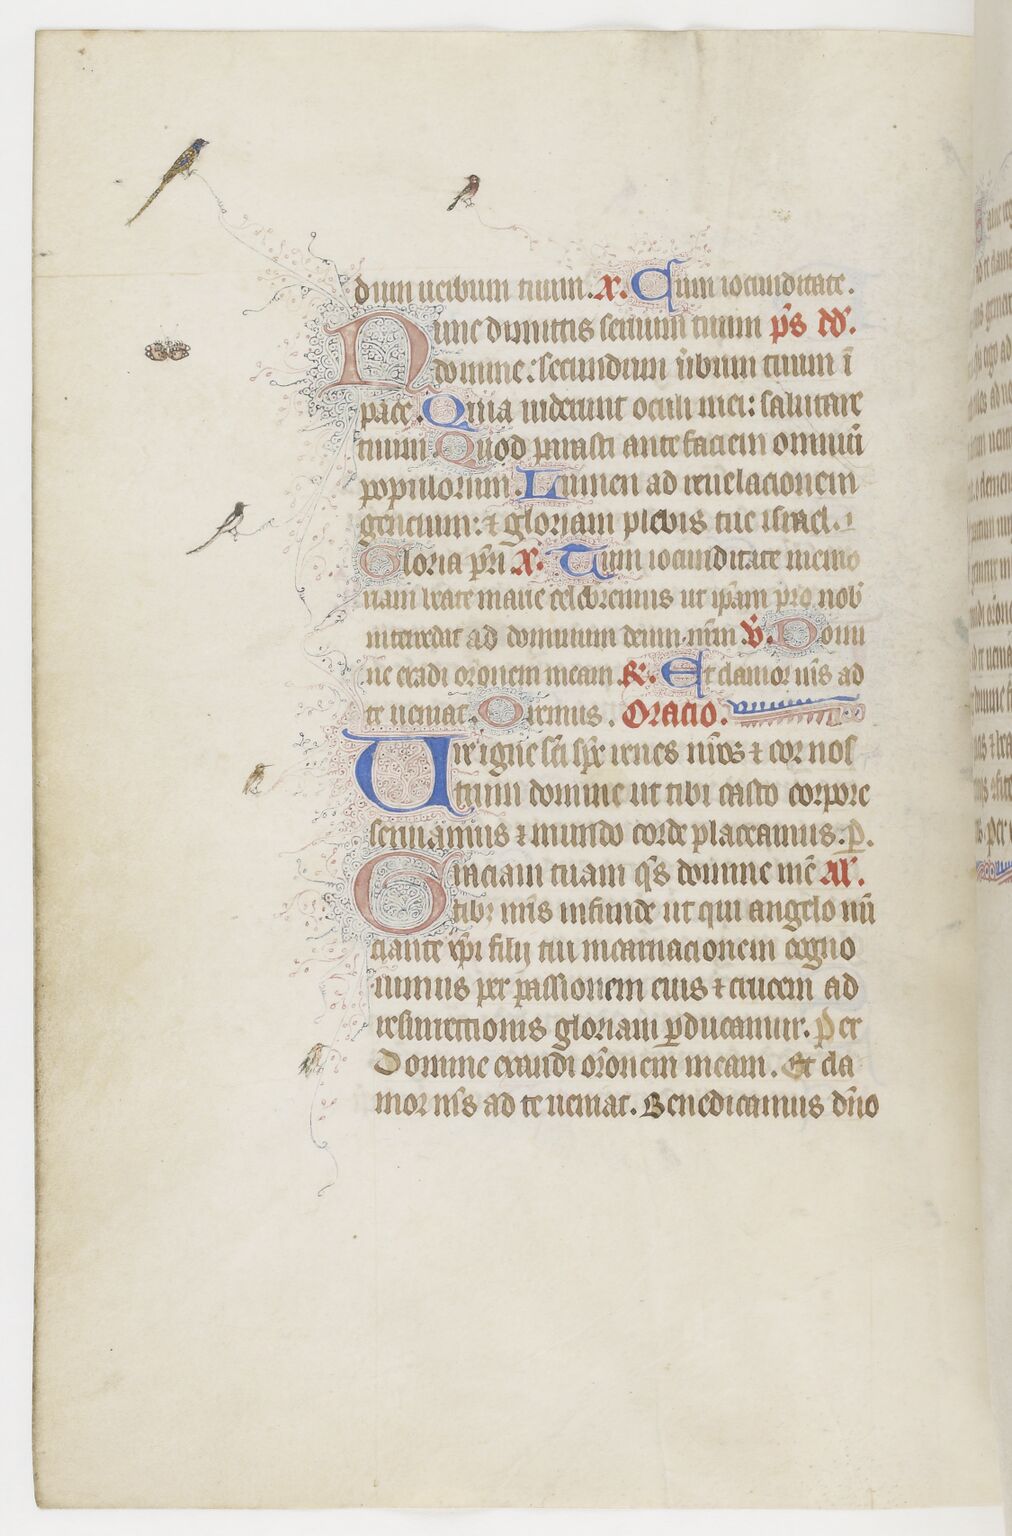 dum uerbum tuum. X. Cum iocunditate.
Nunc dimittis seruum tuum ps dd.
domine: secundum ũbum tuum ĩ
pace. Quia uiderunt oculi mei: salutare
tuum Quod parasti ante faciem omniũ
populorum. Lumen ad reuelacionem
gencium: ⁊ gloriam plebis tue israel.
Gloria pr̃i X. Cum iocunditate memo
riam beate marie celebremus ut ip̃am pro nob̃
intercedat ad dominum deum nr̃m V. Domi
ne exaudi or̃onem meam R. Et clamor m̃s ad
te ueniat. Oremus. Oracio.
Ure igne sc̃i sp̃c renes nr̃os ⁊ cor nos
trum domine ut tibi casto corpore
seruiamus ⁊ mundo corde placeamus. P̱.
Graciam tuam q̃s domine mẽ Al'.
tibꝫ nr̃is infunde ut qui angelo nũ
ciante xp̃i filij tui incarnacionem cogno
uimus per passionem eius ⁊ crucem ad
resurrectionis gloriam ꝑducamur. Per
Domine exaudi or̃onem meam. Et cla
mor m̃s ad te ueniat. Benedicamus dño